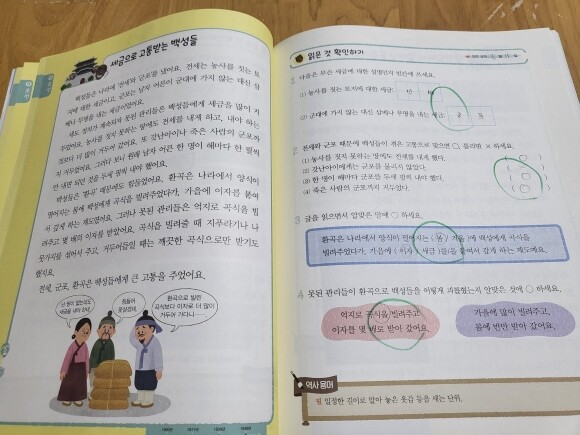 세금으로 고통받는 백성들
백성들은 나라에 '전세'와 '군포'를 냈어요. 전세는 농사를 짓는 토
지에 대한 세금이고, 군포는 남자 어른이 군대에 가지 않는 대신 삼
베나 무명을 내는 세금이었어요.
농사를 짓지 못하는 땅에도 전세를 내게 하고, 내야 하는
것보다 더 많이 거두어 갔어요. 또 갓난아이나 죽은 사람의 군포까
지 거두었어요. 그러다 보니 원래 남자 어른 한 명이 해마다 한 필씩
만 내면 되던 것을 두세 필씩 내야 했어요.
백성들은 '환곡' 때문에도 힘들었어요. 환곡은 나라에서 양식이
떨어지는 봄에 백성에게 곡식을 빌려주었다가, 가을에 이자를 붙여
서 갚게 하는 제도였어요. 그러나 못된 관리들은 억지로 곡식을 빌
려주고 몇 배의 이자를 받았어요. 곡식을 빌려줄 때 지푸라기나 나
뭇가지를 섞어서 주고, 거두어들일 때는 깨끗한 곡식으로만 받기도
했지요.
전세, 군포, 환곡은 백성들에게 큰 고통을 주었어요.
환곡으로 빌린
곡식보다 이자로 더 많이
거두어 가다니……
읽은 것 확인하기
1 다음은 무슨 세금에 대한 설명인지 빈칸에 쓰세요.
(1) 농사를 짓는 토지에 대한 세금:
(2) 군대에 가지 않는 대신 삼베나 무명을 내는 세금:
2 전세와 군포 때문에 백성들이 겪은 고통으로 맞으면 ○, 틀리면 × 하세요.
(1) 농사를 짓지 못하는 땅에도 전세를 내게 했다.
(2) 갓난아이에게는 군포를 물리지 않았다.
(3) 한 명이 해마다 군포를 두세 필씩 내야 했다.
(4) 죽은 사람의 군포까지 거두었다.
3 글을 읽으면서 알맞은 말에 ○ 하세요.
환곡은 나라에서 양식이 떨어지는 ( 봄 / 가을 )에 백성에게 곡식을
빌려주었다가, 가을에 ( 이자 / 세금 )를(을) 붙여서 갚게 하는 제도예요.
4 못된 관리들이 환곡으로 백성들을 어떻게 괴롭혔는지 알맞은 것에 ○ 하세요.
억지로 곡식을 빌려주고,
이자를 몇 배로 받아 갔어요.
가을에 많이 빌려주고,
봄에 반만 받아 갔어요.
역사 용어
필 일정한 길이로 말아 놓은 옷감 등을 세는 단위.